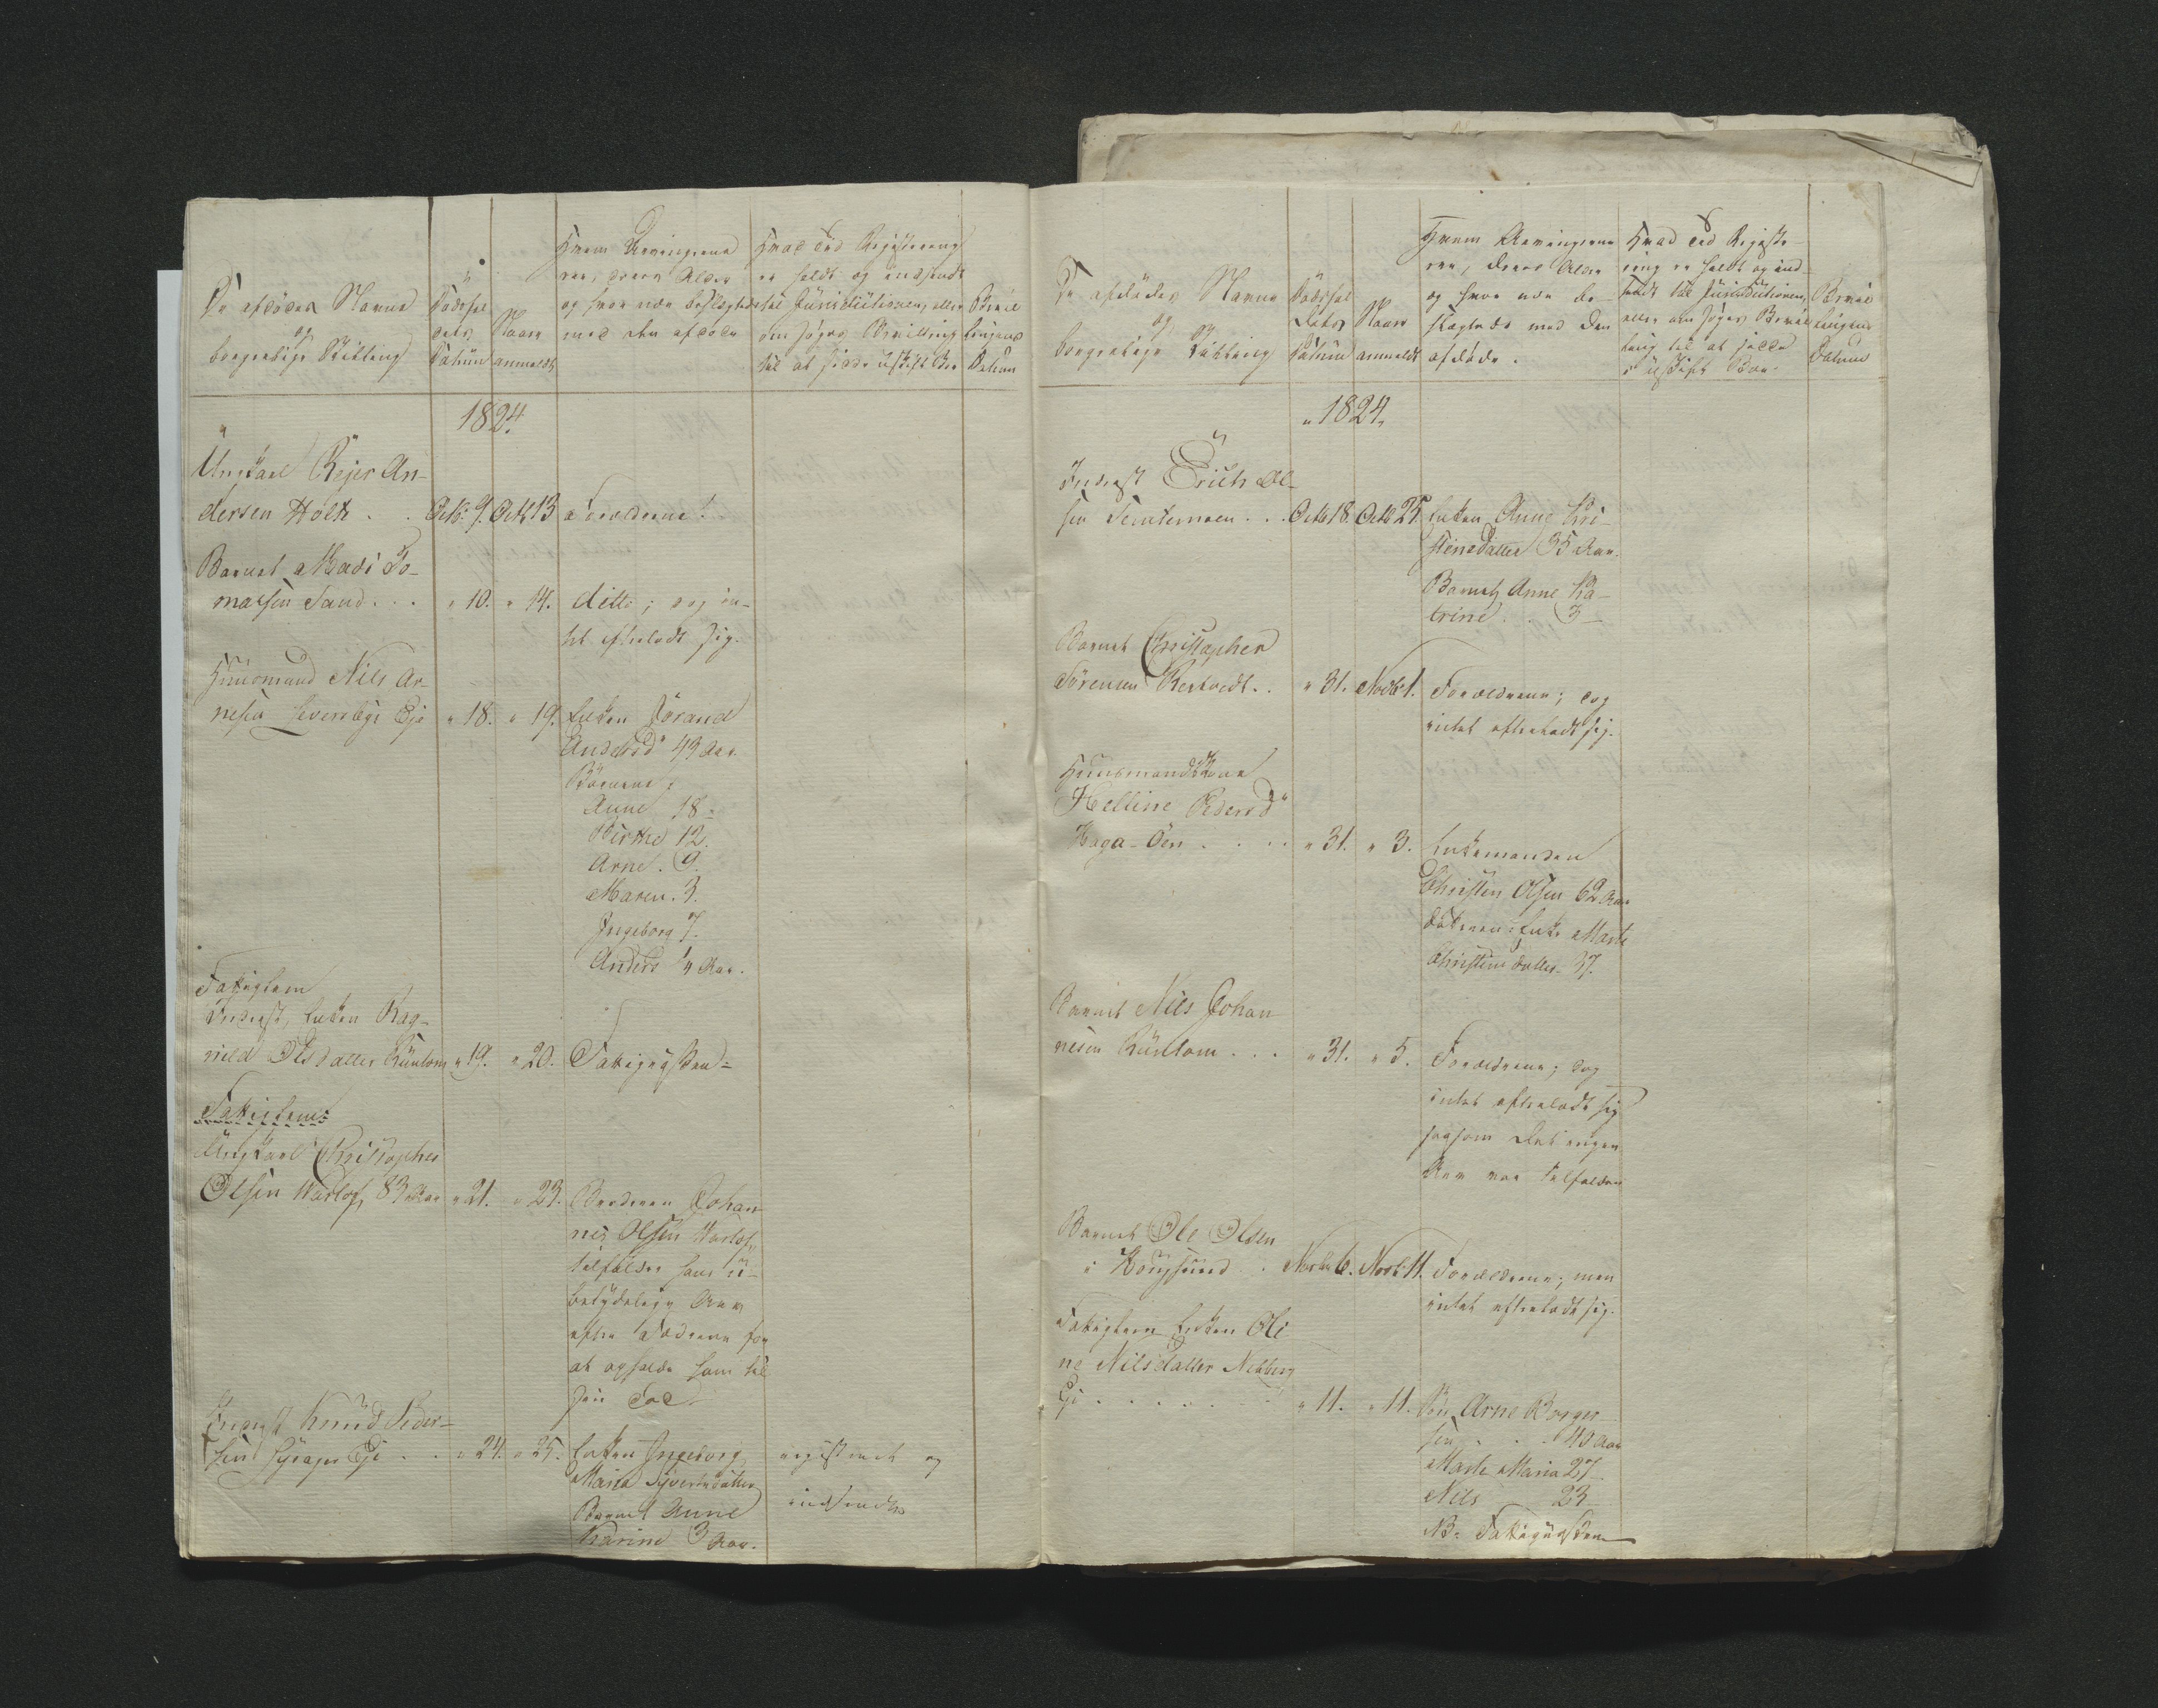 De afdødes Navne
og
borgerlige Stilling
Dødsfal
dets
Datum
Naar
anmeldt
Hvem Arvingerne
ere, deres Alder
og hvor nær beslægtede
med den afdøde
Hvad ved Registrering
er holdt og indsendt
til Jurisdictionen, eller
om søges Bevilling
til at sidde i uskift Boe
Bevil
lingens
Datum
1824.
Ungkarl Rejer An-
dersen Holth . . Octb: 9. Octb 13 Forældrene!
Barnet Mads To-
massen Sand . . . " 10. " 14. ditto; dog in-
tet efterladt sig.
Huusmand Nils Ar-
nesen Eje " 18. " 19. Enken Jörand
Andersd. 43 Aar.
Börnene:
Anne 18 -
Birthe 12.
Arne . 9.
Maren . 3.
Ingeborg 7.
Anders ¼ Aar.
Fattiglem
Inderst, Enken Rag-
nild Olsdatter Rüntom " 19. " 20. Fattigkassen
Fattiglem:
Ungkarl Christopher
Olsen 83 Aar " 21. " 23. Broderen Johan
nes Olsen
tilfalder hans u-
betydelige Arv
efter Döderne for
at opholde ham til
sin Död.
Inderst Knud Peder-
sen Eje . . " 24. " 25. Enken Ingeborg
Maria Syvertsdatter
Barnet Anne
Karine 3 Aar.
registreret og
indsendt
De afdødes Navne
og
borgerlige Stilling
Dødsfal
dets
Datum
Naar
anmeldt
Hvem Arvingerne
ere, deres Alder
og hvor nær be-
slægtede med den
afdøde.
Hvad ved Registre-
ring er holdt og ind-
sendt til Jurisdictionen,
eller om søges Bevil
ling til at sidde
i uskift Boe.
Bevil
lingens
Datum
" 1824.
Inderst Erich Ol-
sen . . . Octb 18. Octb 25. Enken Anne Kri-
stensdatter 35 Aar.
Barnet Anne Ka-
trine . . 3 -
Barnet Christopher
Sörensen . . " 31. Novbr 1. Forældrene; dog
intet efterladt sig.
Huusmandskone
Helline Pedersd.
Haga-Öen . . . . " 31. " 3. Enkemanden
Christen Olsen 62 Aar
datteren: Enke Marte
Christensdatter 37.
Barnet Nils Johan
nesen Rüntom . . . " 31. " 5. Forældrene; dog
intet efterladt sig
saasom det ingen
Arv var tilfalden
Barnet Ole Olsen
i Hougsund . . Novbr 6. Novb: 11. Forældrene; men
intet efterladt sig.
Fattiglem Enken Oli
ne Nilsdatter
Eje . . . . . . . " 11. " 11. Sön Arne Borger
sen . . . 40 Aar
Marte Maria 27
Nils 23
NB: Fattigkassen